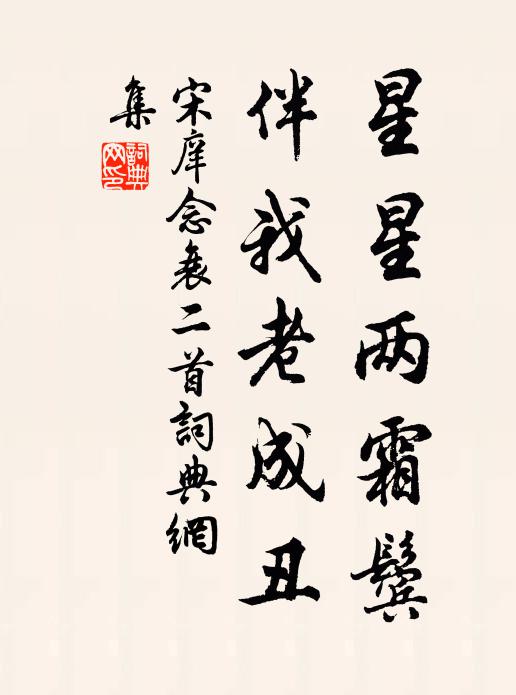 星星两霜鬓
伴我老成丑
宋庠念衰二首詞典網
集
詞典
网印